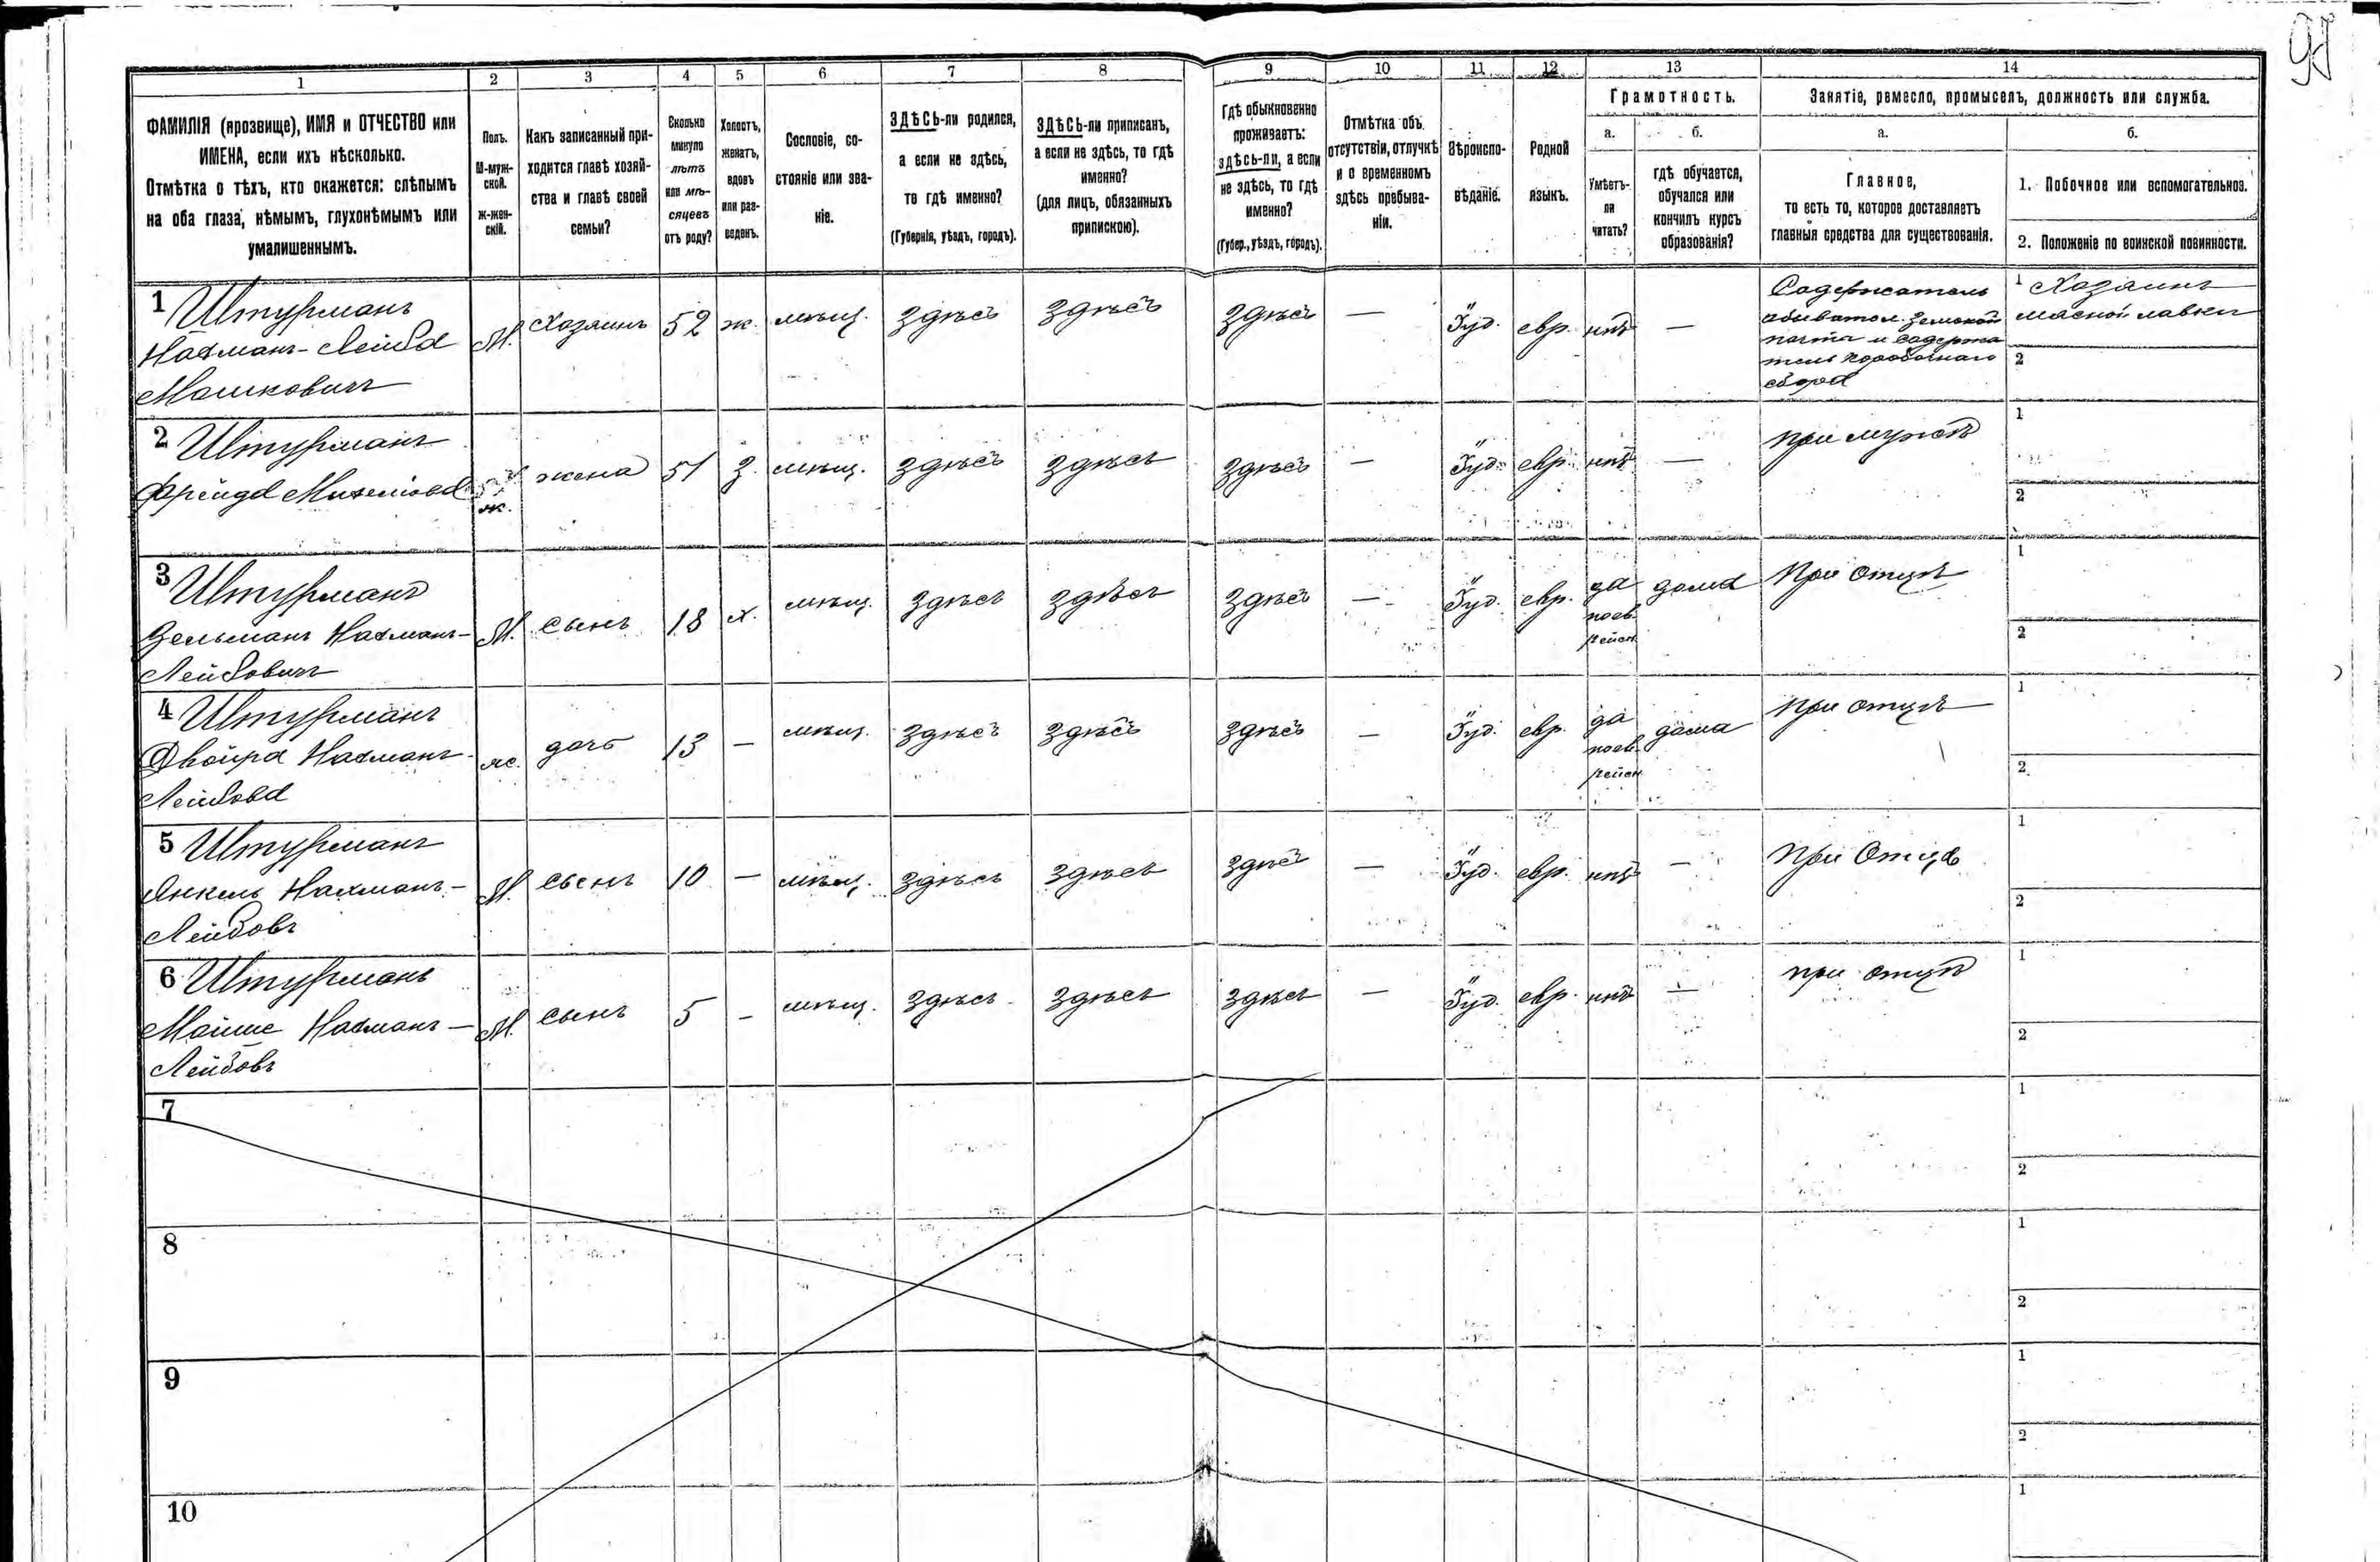 97
1
2
3
4
5
6
7
8
9
10
11
12
13
14
ФАМИЛІЯ (прозвище), ИМЯ и ОТЧЕСТВО или
ИМЕНА, если ихъ нѣсколько.
Отмѣтка о тѣхъ, кто окажется: слѣпымъ
на оба глаза, нѣмымъ, глухонѣмымъ или
умалишеннымъ.
Полъ.
М-муж-
ской.
ж-жен-
скій.
Какъ записанный при-
ходится главѣ хозяй-
ства и главѣ своей
семьи?
Сколько
минуло
лѣтъ
или мѣ-
сяцевъ
отъ роду?
Холостъ,
женатъ,
вдовъ
или раз-
веденъ.
Сословіе, со-
стояніе или зва-
ніе.
ЗДѢСЬ-ли родился,
а если не здѣсь,
то гдѣ именно?
(Губернія, уѣздъ, городъ).
ЗДѢСЬ-ли приписанъ,
а если не здѣсь, то гдѣ
именно?
(для лицъ, обязанныхъ
припискою).
Гдѣ обыкновенно
проживаетъ:
здѣсь-ли, а если
не здѣсь, то гдѣ
именно?
(Губер., уѣздъ, городъ).
Отмѣтка объ
отсутствіи, отлучкѣ
и о временномъ
здѣсь пребыва-
ніи.
Вѣроиспо-
вѣданіе.
Родной
языкъ.
Грамотность.
а.
Умѣетъ-
ли
читать?
б.
гдѣ обучается,
обучался или
кончилъ курсъ
образованія?
Занятіе, ремесло, промыселъ, должность или служба.
а.
Главное,
то есть то, которое доставляетъ
главныя средства для существованія.
б.
1. Побочное или вспомогательное.
2. Положеніе по воинской повинности.
1 Штурманъ
Нахманъ-Лейба
Мошковичъ
М.
Хозяинъ
52
ж.
мѣщ.
здѣсь
здѣсь
здѣсь
—
Іуд.
евр.
нѣтъ
—
Содержатель
обывател. земской
почты и содержа
тель коробочнаго
сбора
1 Хозяинъ
мясной лавки
2
2 Штурманъ
Фрейда
ж.
жена
51
З.
мѣщ.
здѣсь
здѣсь
здѣсь
—
Іуд.
евр.
нѣтъ
—
при мужѣ
1
2
3 Штурманъ
Зельманъ Нахманъ-
Лейбовичъ
М.
сынъ
18
х.
мѣщ.
здѣсь
здѣсь
здѣсь
—
Іуд.
евр.
да
поев
рейск
дома
При отцѣ
1
2
4 Штурманъ
Двойра Нахманъ-
Лейбова
ж.
дочь
13
—
мѣщ.
здѣсь
здѣсь
здѣсь
—
Іуд.
евр.
да
поев
рейск
дома
При отцѣ
1
2
5 Штурманъ
Янкель Нахманъ-
Лейбовъ
М.
сынъ
10
—
мѣщ.
здѣсь
здѣсь
здѣсь
—
Іуд.
евр.
нѣтъ
—
При Отцѣ
1
2
6 Штурманъ
Мойше Нахманъ-
Лейбовъ
М.
сынъ
5
—
мѣщ.
здѣсь
здѣсь
здѣсь
—
Іуд.
евр.
нѣтъ
—
при отцѣ
1
2
7
1
2
8
1
2
9
1
2
10
1